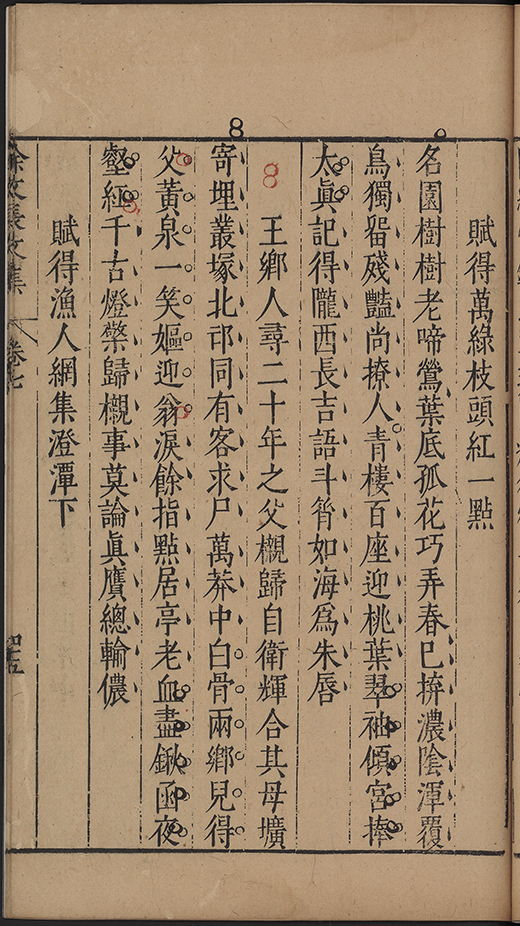 賦得萬綠枝頭紅一點
名園樹樹老啼鶯葉底孤花巧弄春已拚濃陰渾覆
鳥獨留殘豔尚撩人青樓百座迎桃葉翠袖傾宮捧
太眞記得隴西長吉語斗筲如海爲朱唇
王鄉人尋二十年之父櫬歸自衛輝合其母壙
寄埋叢塚北邙同有客求尸萬莽中白骨兩鄉兒得
父黃泉一笑嫗迎翁淚餘指點居亭老血盡鍬函夜
壑紅千古燈檠歸櫬事莫論眞贋總輸儂
賦得漁人網集澄潭下
徐文長文集
卷七
8
8